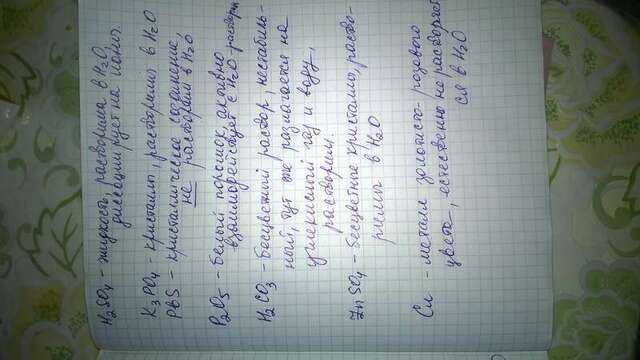 H₂SO₄ - жидкость, растворима в H₂O,
диссоциирует на ионы.
K₃PO₄ - кристаллы, растворимы в H₂O
PbS - кристаллическое соединение,
не растворим в H₂O.
P₂O₅ - белый порошок, активно
взаимодействует с H₂O растворим
H₂CO₃ - бесцветный раствор, нестабиль-
ный, тут же разлагается на
углекислый газ и воду,
растворим.
ZnSO₄ - бесцветные кристаллы, раство-
римы в H₂O
Cu - металл золотисто-розового
цвета, естественно не растворяет
ся в H₂O